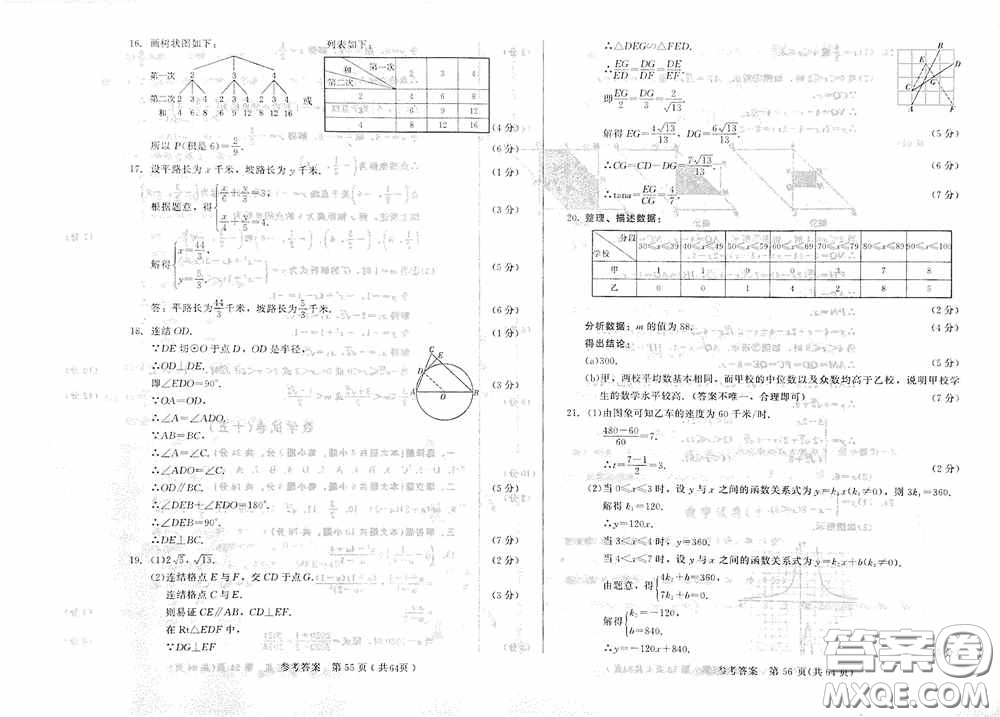 16. 画树状图如下：
列表如下：
第一次 2 3 4
第二次 2 3 4 2 3 4 2 3 4
和 4 6 8 6 9 12 8 12 16 或
和 第一次 第二次 2 3 4
2 4 6 8
3 6 9 12
4 8 12 16
(4 分)
所以 P(积是 6)=2/9. (6 分)
17. 设平路长为 x 千米，坡路长为 y 千米. (1 分)
根据题意，得 {x/6+y/3=3, x/4+y/5=4. (3 分)
解得 {x=44/3, y=5/3. (5 分)
答：平路长为 44/3 千米，坡路长为 5/3 千米. (6 分)
18. 连结 OD. (1 分)
∵DE 切⊙O 于点 D，OD 是半径，
∴OD⊥DE.
即∠EDO=90°. (3 分)
∵OA=OD，
∴∠A=∠ADO.
∵AB=BC，
∴∠A=∠C.
∴∠ADO=∠C.
∴OD∥BC. (5 分)
∴∠DEB+∠EDO=180°.
∴∠DEB=90°.
∴DE⊥BC. (7 分)
C E D A O B
19. (1)2√5，√13. (2 分)
(2)连结格点 E 与 F，交 CD 于点 G.
连结格点 C 与 E. (3 分)
则易证 CE∥AB，CD⊥EF.
在 Rt△EDF 中，
∵DG⊥EF
参考答案 第 55 页(共 64页)
∴△DEG∽△FED.
∴EG/ED=DG/DF=DE/EF.
即 EG/2=DG/3=2/√13.
解得 EG=4√13/13，DG=6√13/13. (5 分)
∴CG=CD−DG=7√13/13. (6 分)
∴tanα=EG/CG=4/7. (7 分)
B E D G C A F
20. 整理、描述数据：
分段 学校 30≤x≤39 40≤x≤49 50≤x≤59 60≤x≤69 70≤x≤79 80≤x≤89 90≤x≤100
甲 1 1 0 0 3 7 8
乙 0 0 1 4 2 8 5
(2 分)
分析数据：m 的值为 88. (4 分)
得出结论：
(a)300. (5 分)
(b)甲，两校平均数基本相同，而甲校的中位数以及众数均高于乙校，说明甲校学
生的数学水平较高.（答案不唯一、合理即可） (7 分)
21. (1)由图象可知乙车的速度为 60 千米/时.
(480−60)/60=7.
∴t=(7−1)/2=3. (2 分)
(2)当 0≤x≤3 时，设 y 与 x 之间的函数关系式为 y=k₁x(k₁≠0)，则 3k₁=360.
解得 k₁=120.
∴y=120x.
当 3<x≤4 时，y=360.
当 4<x≤7 时，设 y 与 x 之间的函数关系式为 y=k₂x+b(k₂≠0)
由题意，得 {4k₂+b=360, 7k₂+b=0.
解得 {k₂=−120, b=840.
∴y=−120x+840.
参考答案 第 56 页(共 64 页)
答案圈
MXQE.COM